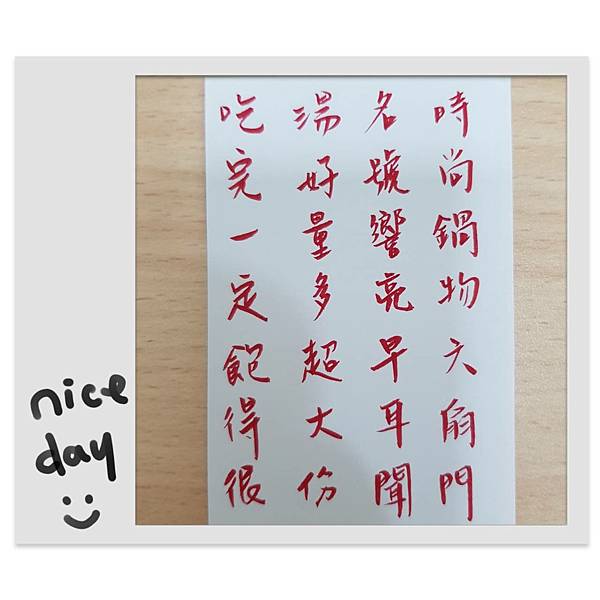 時尚鍋物六扇門
名號響亮早耳聞
湯好量多超大份
吃完一定飽得很
nice
day